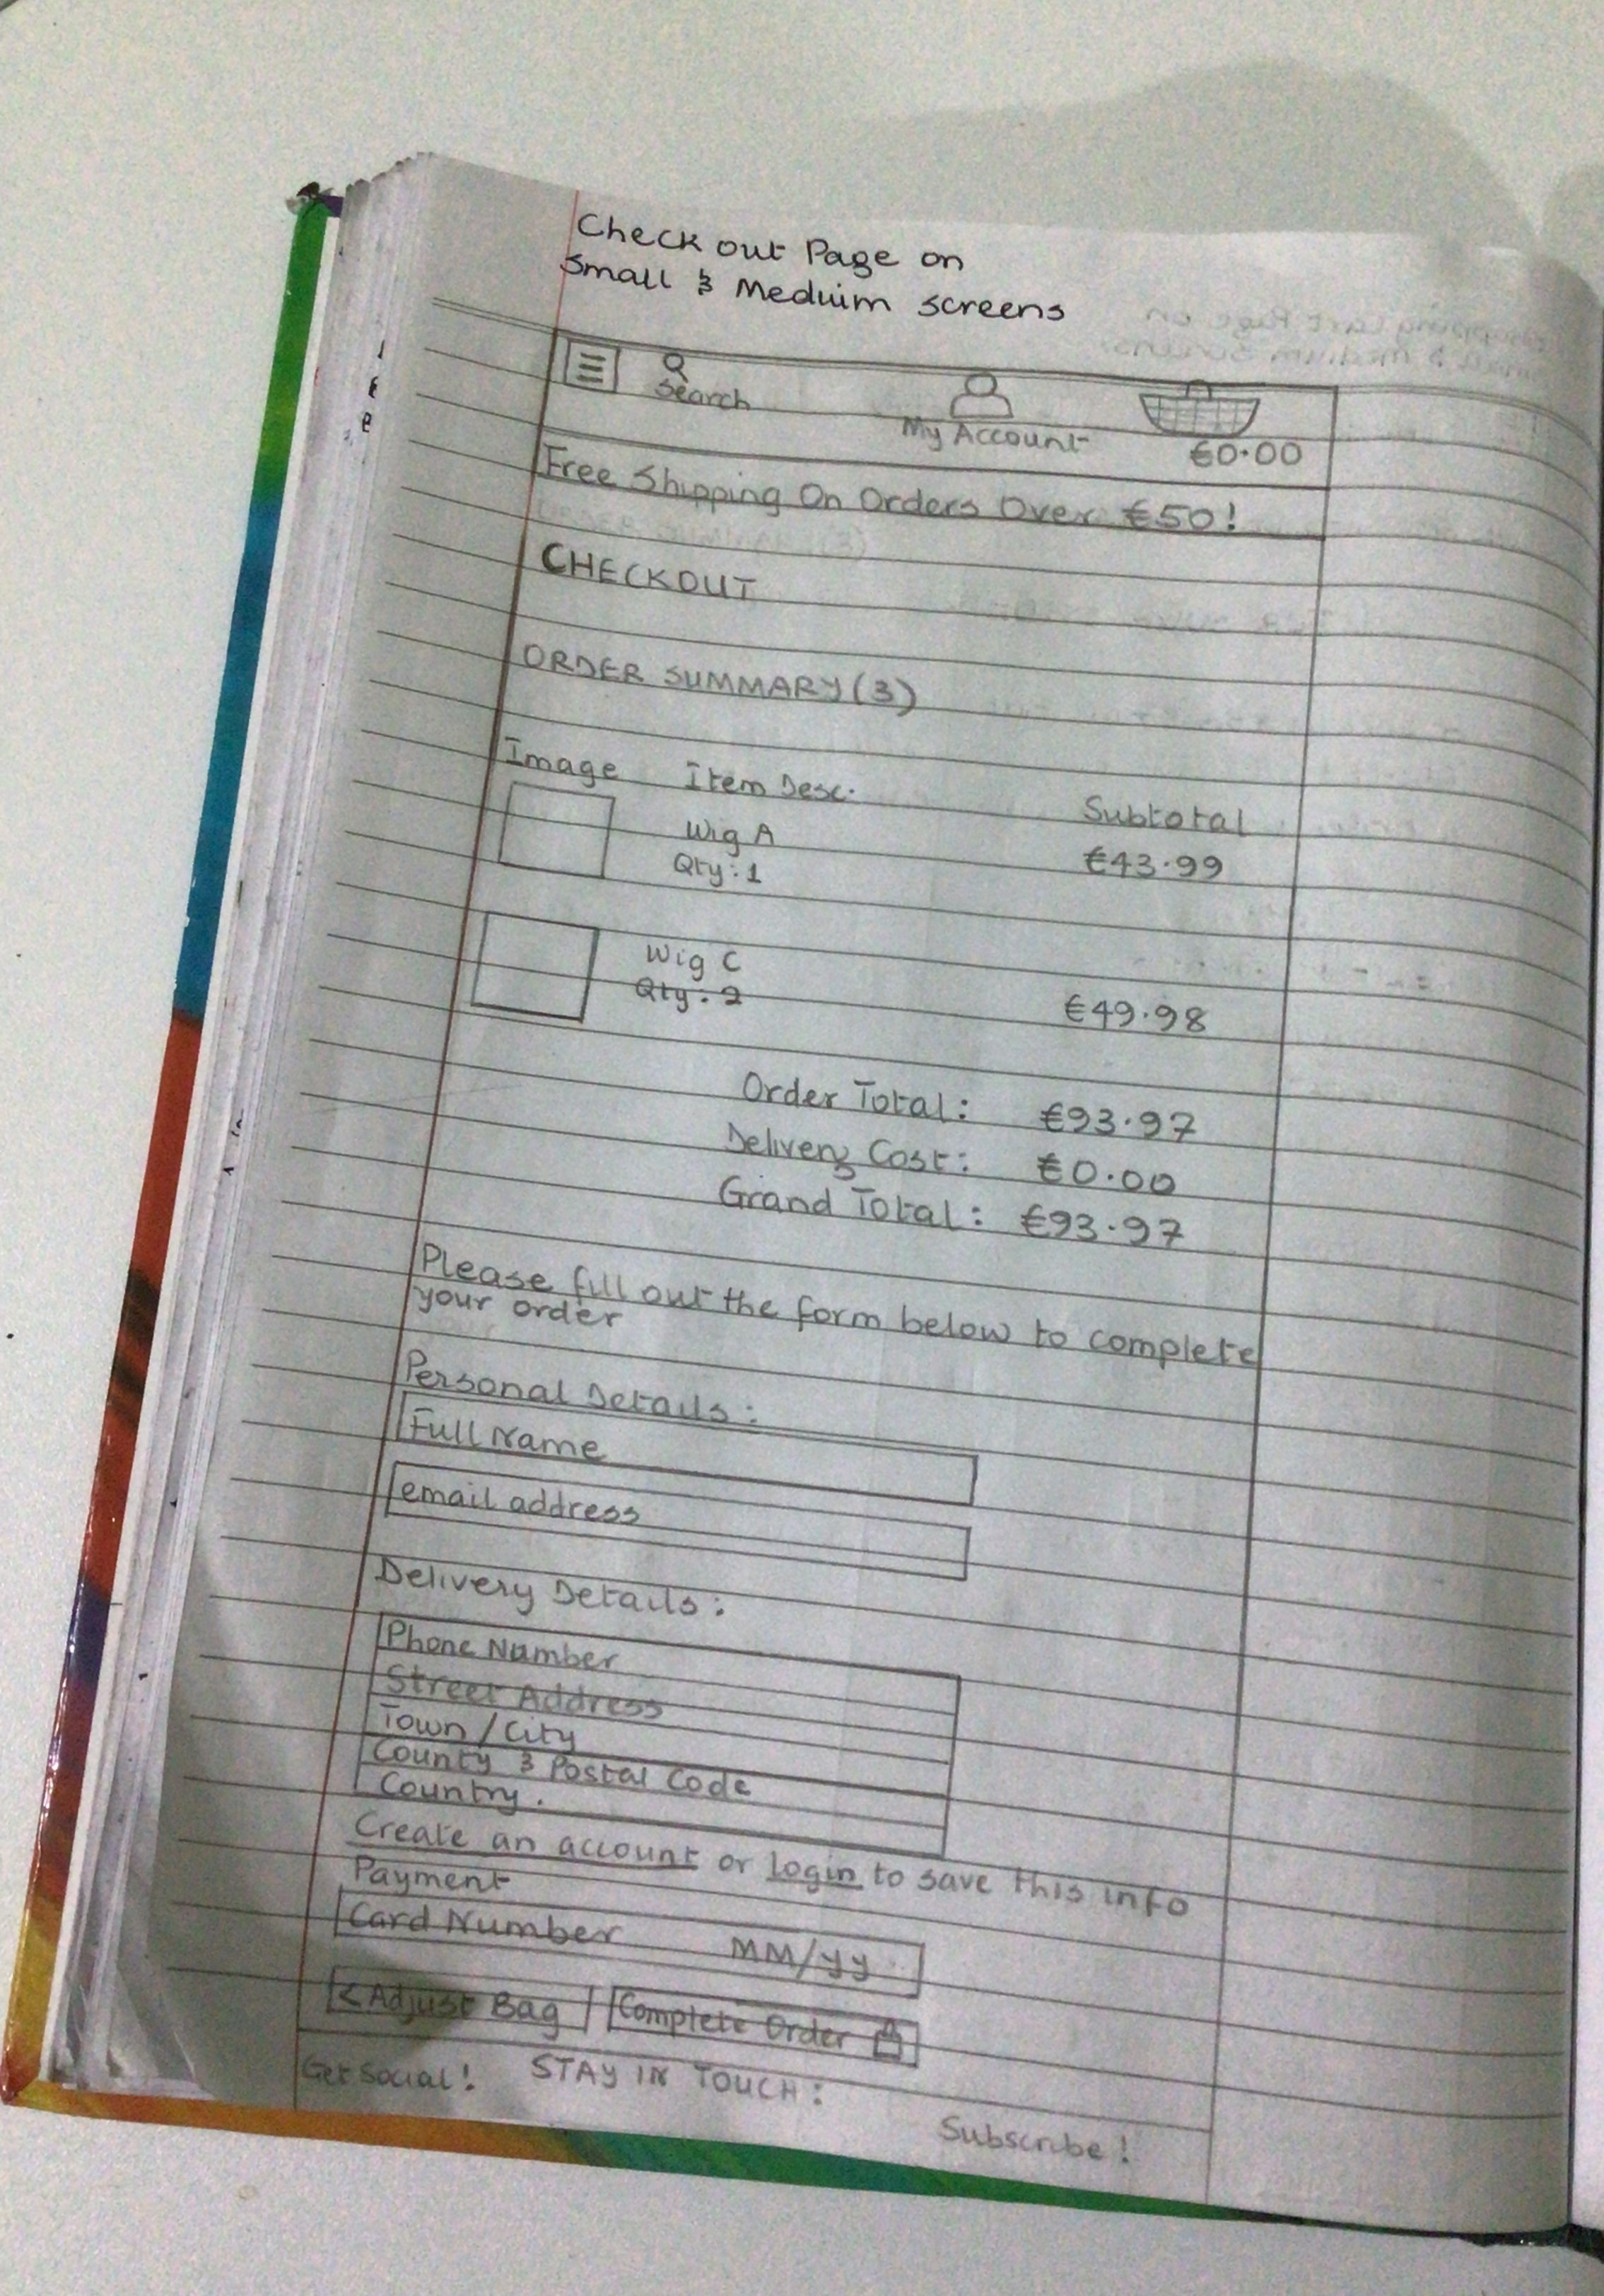 Check out Page on
Small & Meduim screens
Search
My Account
€0.00
Free Shipping On Orders Over €50!
CHECKOUT
ORDER SUMMARY (3)
Image Item Desc. Subtotal
Wig A €43.99
Qty: 1
Wig C
Qty: 2 €49.98
Order Total: €93.97
Delivery Cost: €0.00
Grand Total: €93.97
Please fill out the form below to complete
your order
Personal Details:
Full Name
email address
Delivery Details:
Phone Number
Street Address
Town / City
County & Postal Code
Country.
Create an account or login to save this info
Payment
Card Number MM/YY
< Adjust Bag Complete Order
Get Social! STAY IN TOUCH:
Subscribe!